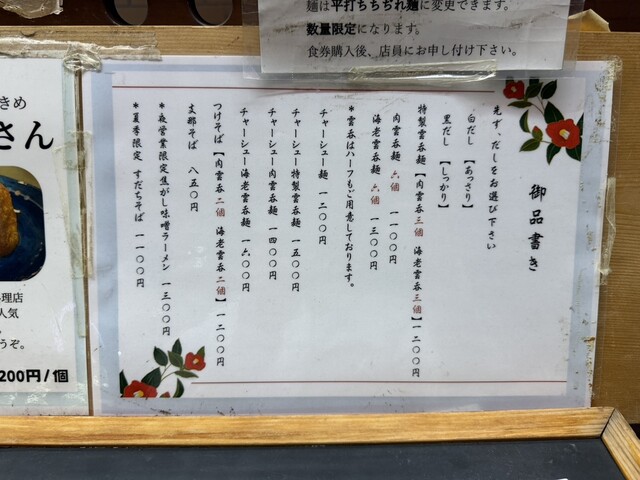 麺は平打ちちぢれ麺に変更できます。
数量限定になります。
食券購入後、店員にお申し付け下さい。
御品書き
先ず、だしをお選び下さい
白だし 【あっさり】
黒だし 【しっかり】
特製雲呑麺【肉雲呑三個 海老雲呑三個】一二〇〇円
肉雲呑麺 六個 一一〇〇円
海老雲呑麺 六個 一三〇〇円
*雲呑はハーフもご用意しております。
チャーシュー麺 一二〇〇円
チャーシュー特製雲呑麺 一五〇〇円
チャーシュー肉雲呑麺 一四〇〇円
チャーシュー海老雲呑麺 一六〇〇円
つけそば【肉雲呑二個 海老雲呑二個】一二〇〇円
支那そば 八五〇円
*夜営業限定焦がし味噌ラーメン 一三〇〇円
*夏季限定 すだちそば 一一〇〇円
きめ
さん
理店
人気
。
うぞ。
200円/個